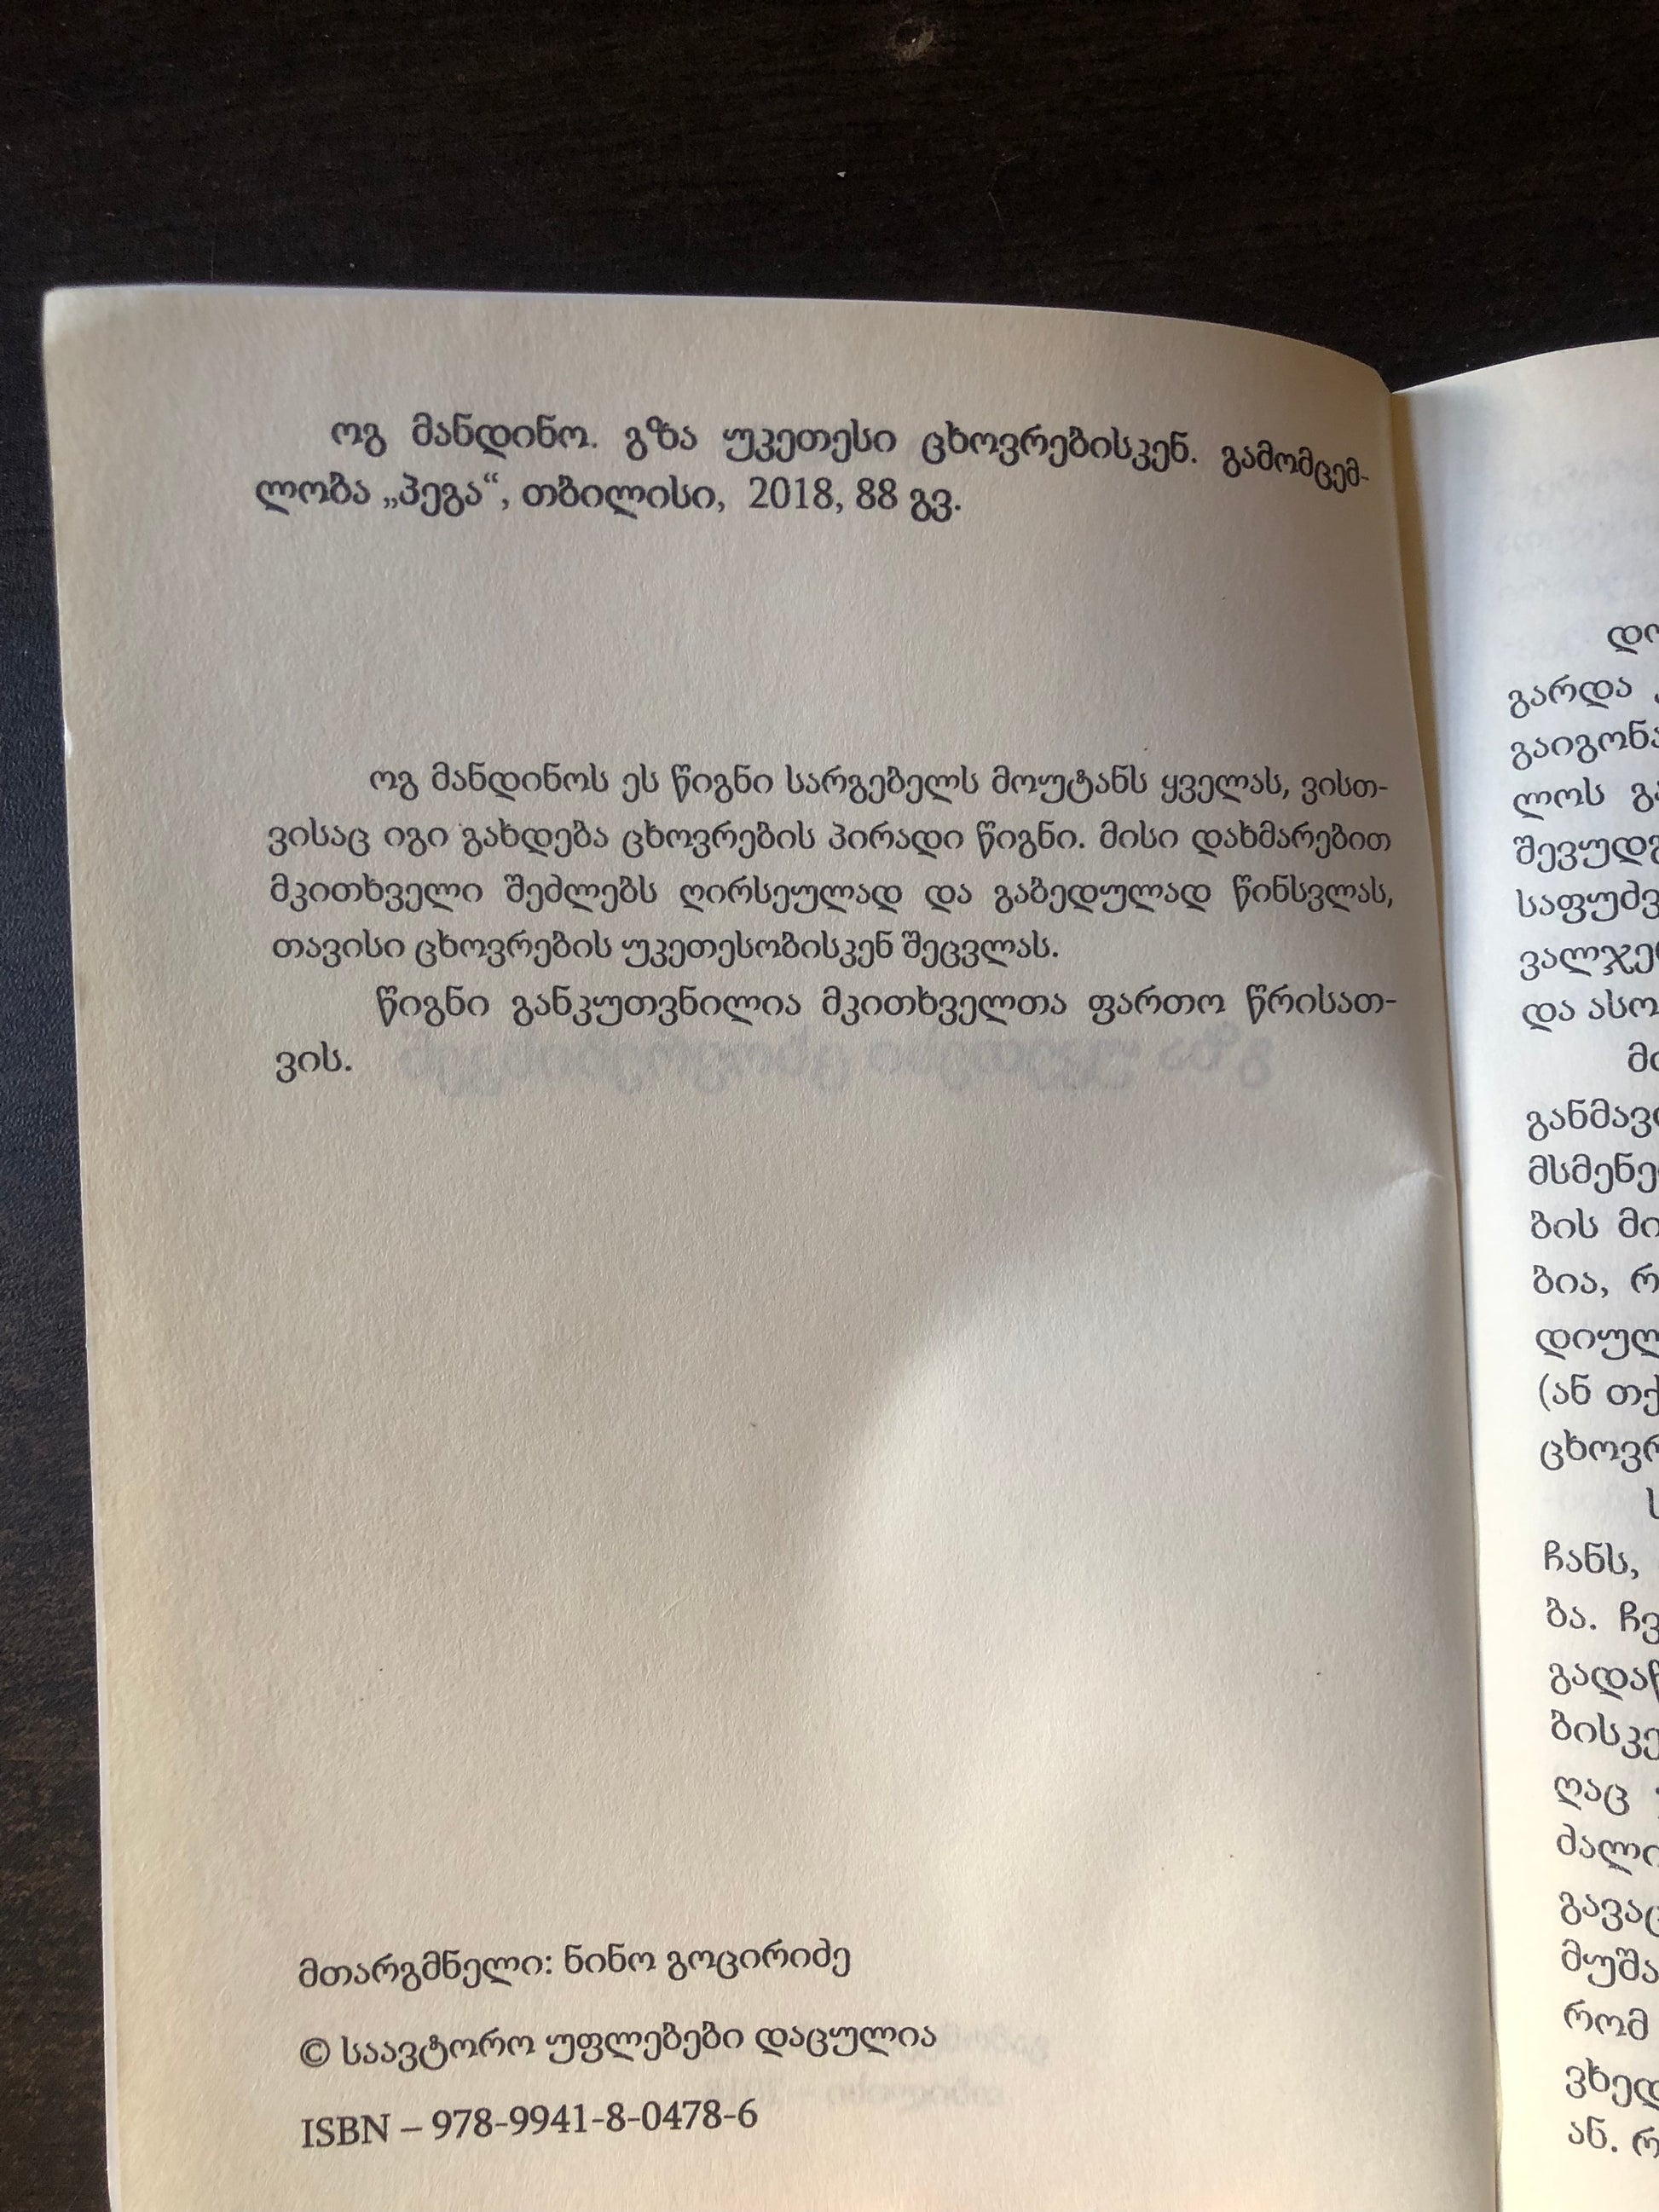 ოგ მანდინო. გზა უკეთესი ცხოვრებისკენ. გამომცემ-
ლობა „პეგა“, თბილისი, 2018, 88 გვ.
ოგ მანდინოს ეს წიგნი სარგებელს მოუტანს ყველას, ვისთ-
ვისაც იგი გახდება ცხოვრების პირადი წიგნი. მისი დახმარებით
მკითხველი შეძლებს ღირსეულად და გაბედულად წინსვლას,
თავისი ცხოვრების უკეთესობისკენ შეცვლას.
წიგნი განკუთვნილია მკითხველთა ფართო წრისათ-
ვის.
მთარგმნელი: ნინო გოცირიძე
© საავტორო უფლებები დაცულია
ISBN – 978-9941-8-0478-6
გარდა
ლოს
და
ბის
ბია,
(ან
ჩანს,
ბა.
ღაც
რომ
ან.